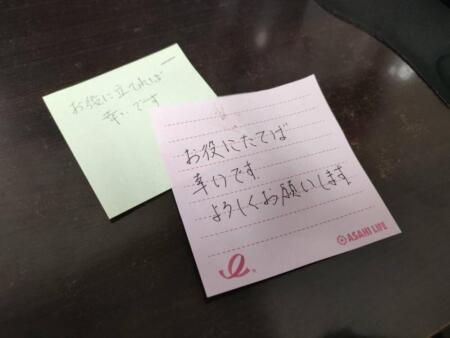 お役に立てれば
幸いです
お役にたてば
幸いです
よろしくお願いします
ASAHI LIFE